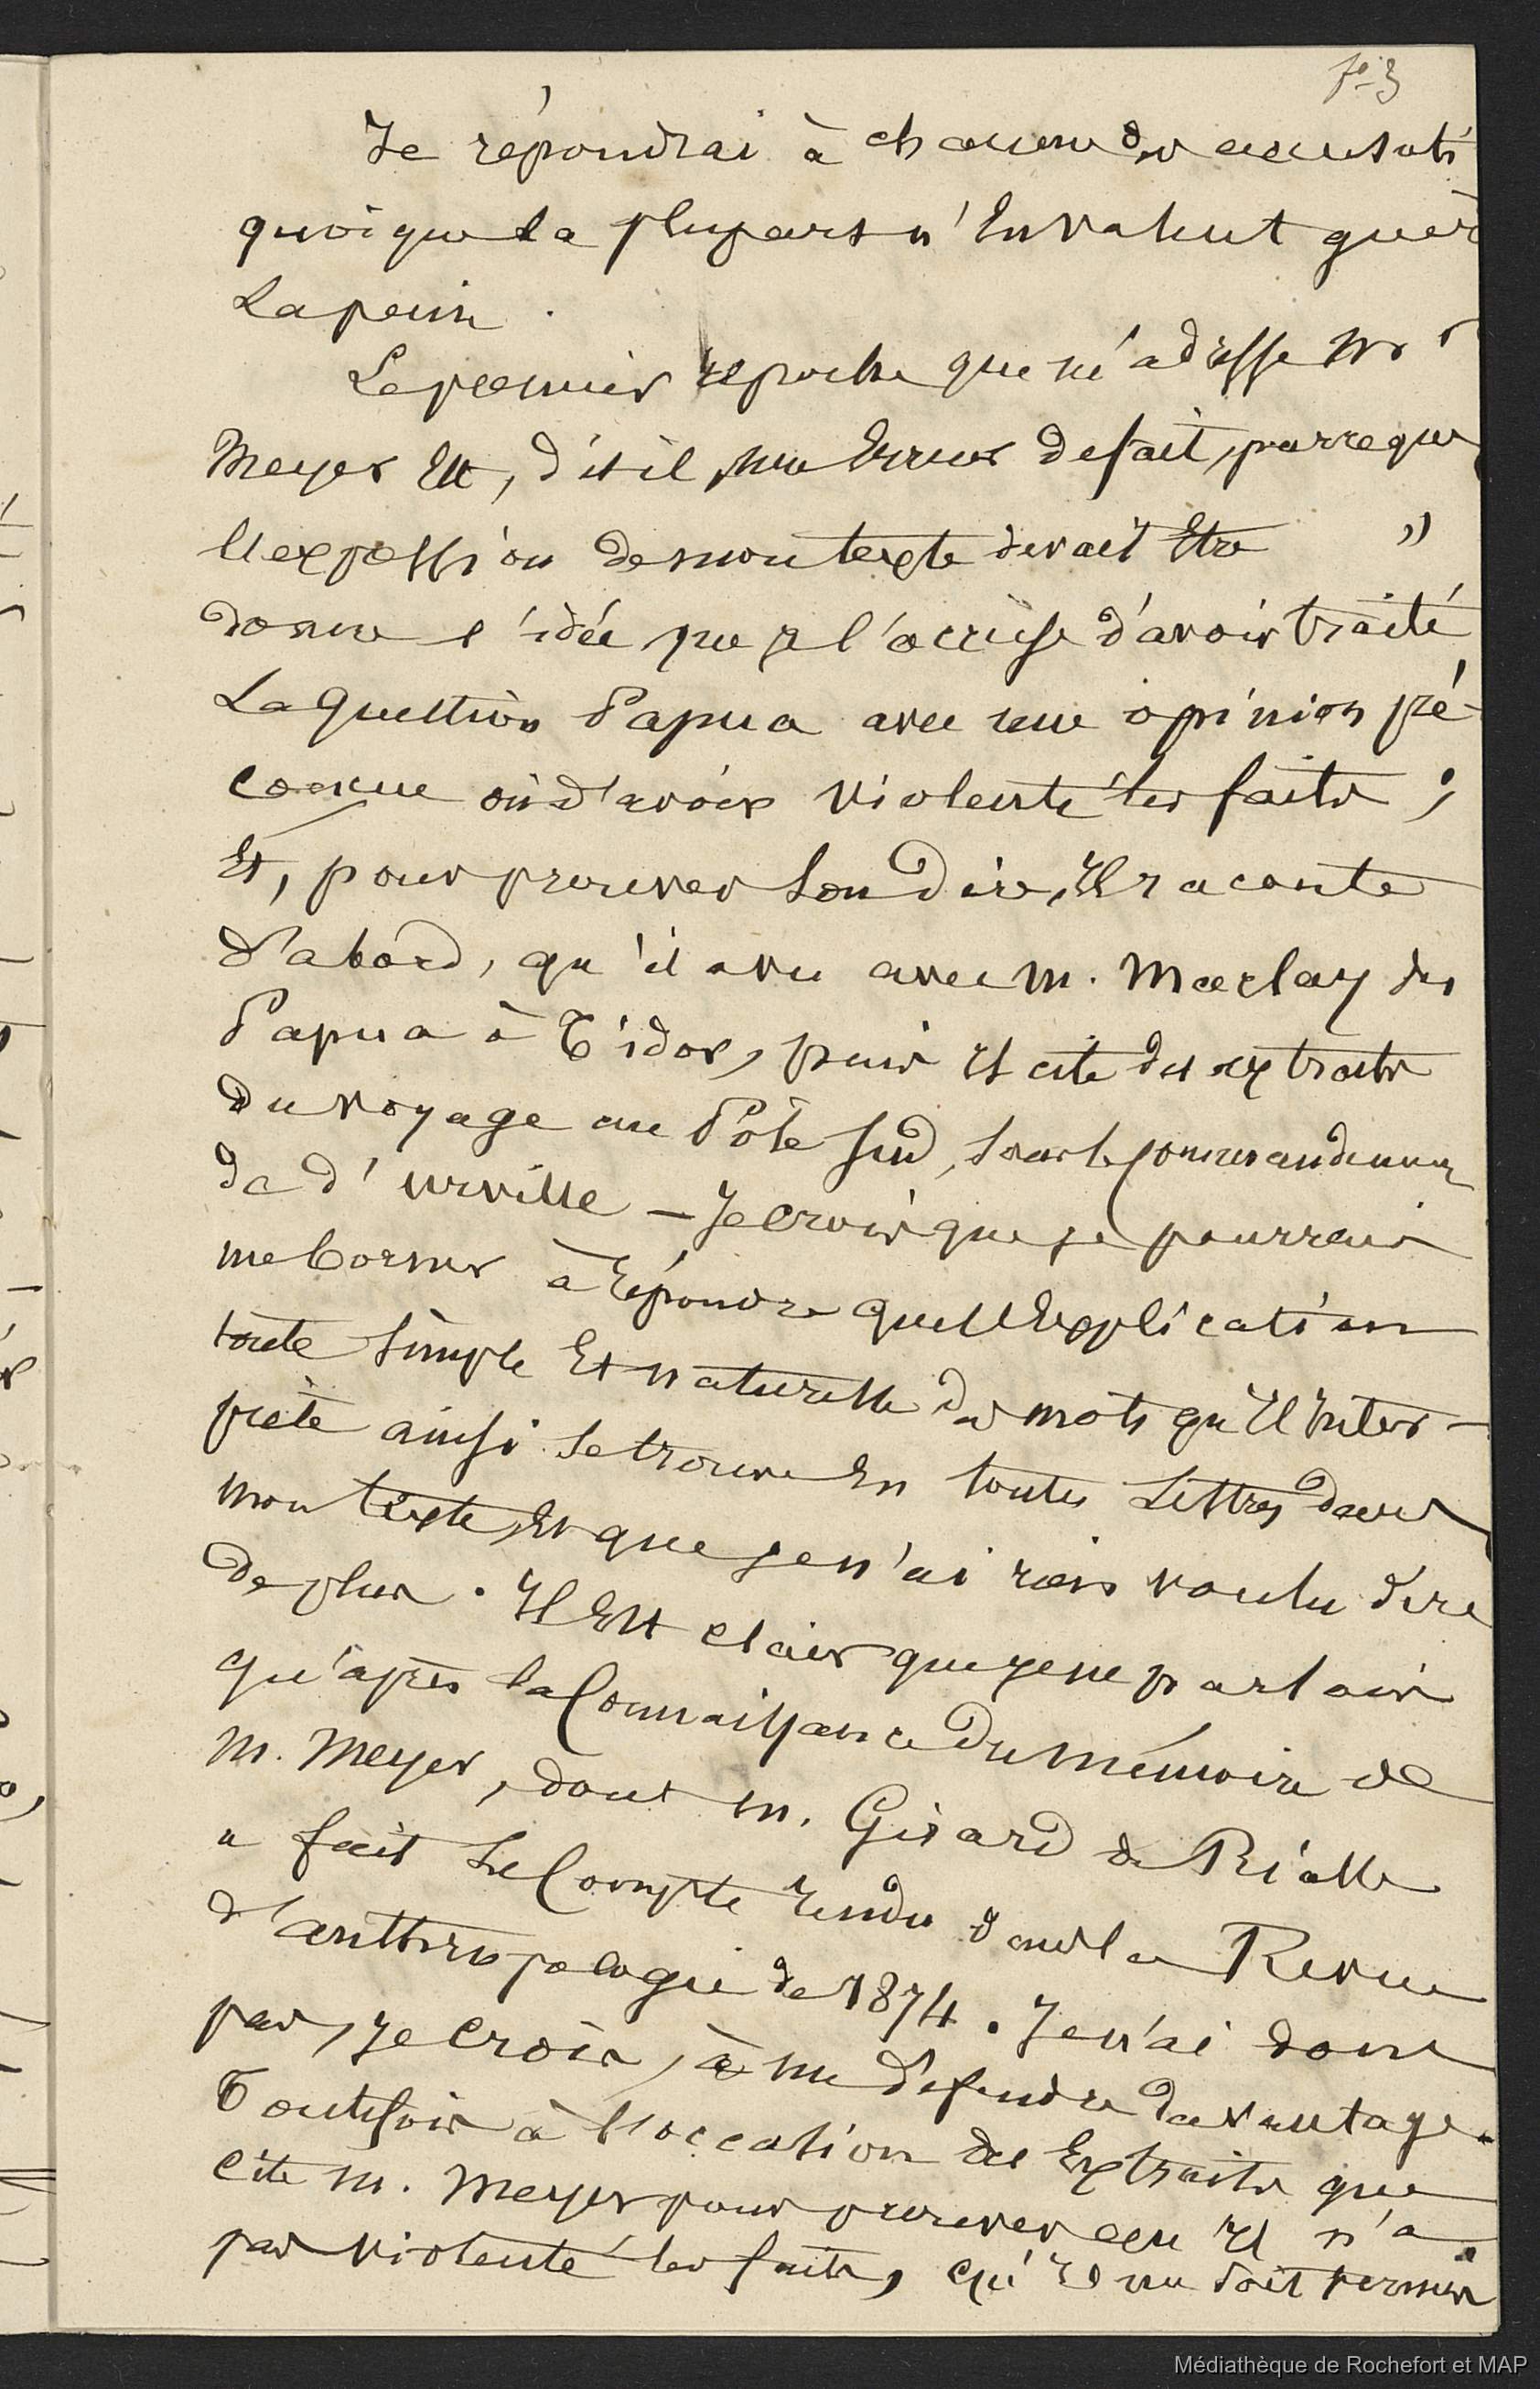 fo 3
Je répondrai à chacune des accusati
quoique la plupart n'en valent guèr
la peine.
Le premier reproche que m'adresse Mr
Meyer est, dit-il, une erreur de fait, parce que
l'expression de mon texte devait être "
donne l'idée que je l'accuse d'avoir traité
la question Papua avec une opinion pré-
conçue ou d'avoir violenté les faits ;
Et, pour prouver son dire, Il raconte
d'abord, qu'il a vu avec M. Maclay des
Papua à Tidor, puis Il cite des extraits
du voyage au Pôle Sud, sous le commandement
de d'Urville — Je crois que je pourrais
me borner à répondre que l'Explication
toute simple Et naturelle des mots qu'Il Inter-
prète ainsi se trouve En toutes Lettres dans
mon texte, Et que je n'ai rien voulu dire
de plus. Il Est clair que je ne parlais
qu'après la Connaissance du mémoire de
M. Meyer, dont M. Girard de Rialle
a fait le Compte rendu dans la Revue
d'anthropologie de 1874. Je n'ai donc
pas, je crois, à me défendre davantage.
Toutefois à l'occasion des Extraits que
cite M. Meyer pour prouver qu'Il n'a
pas violenté les faits, qu'Il me soit permis
Médiathèque de Rochefort et MAP